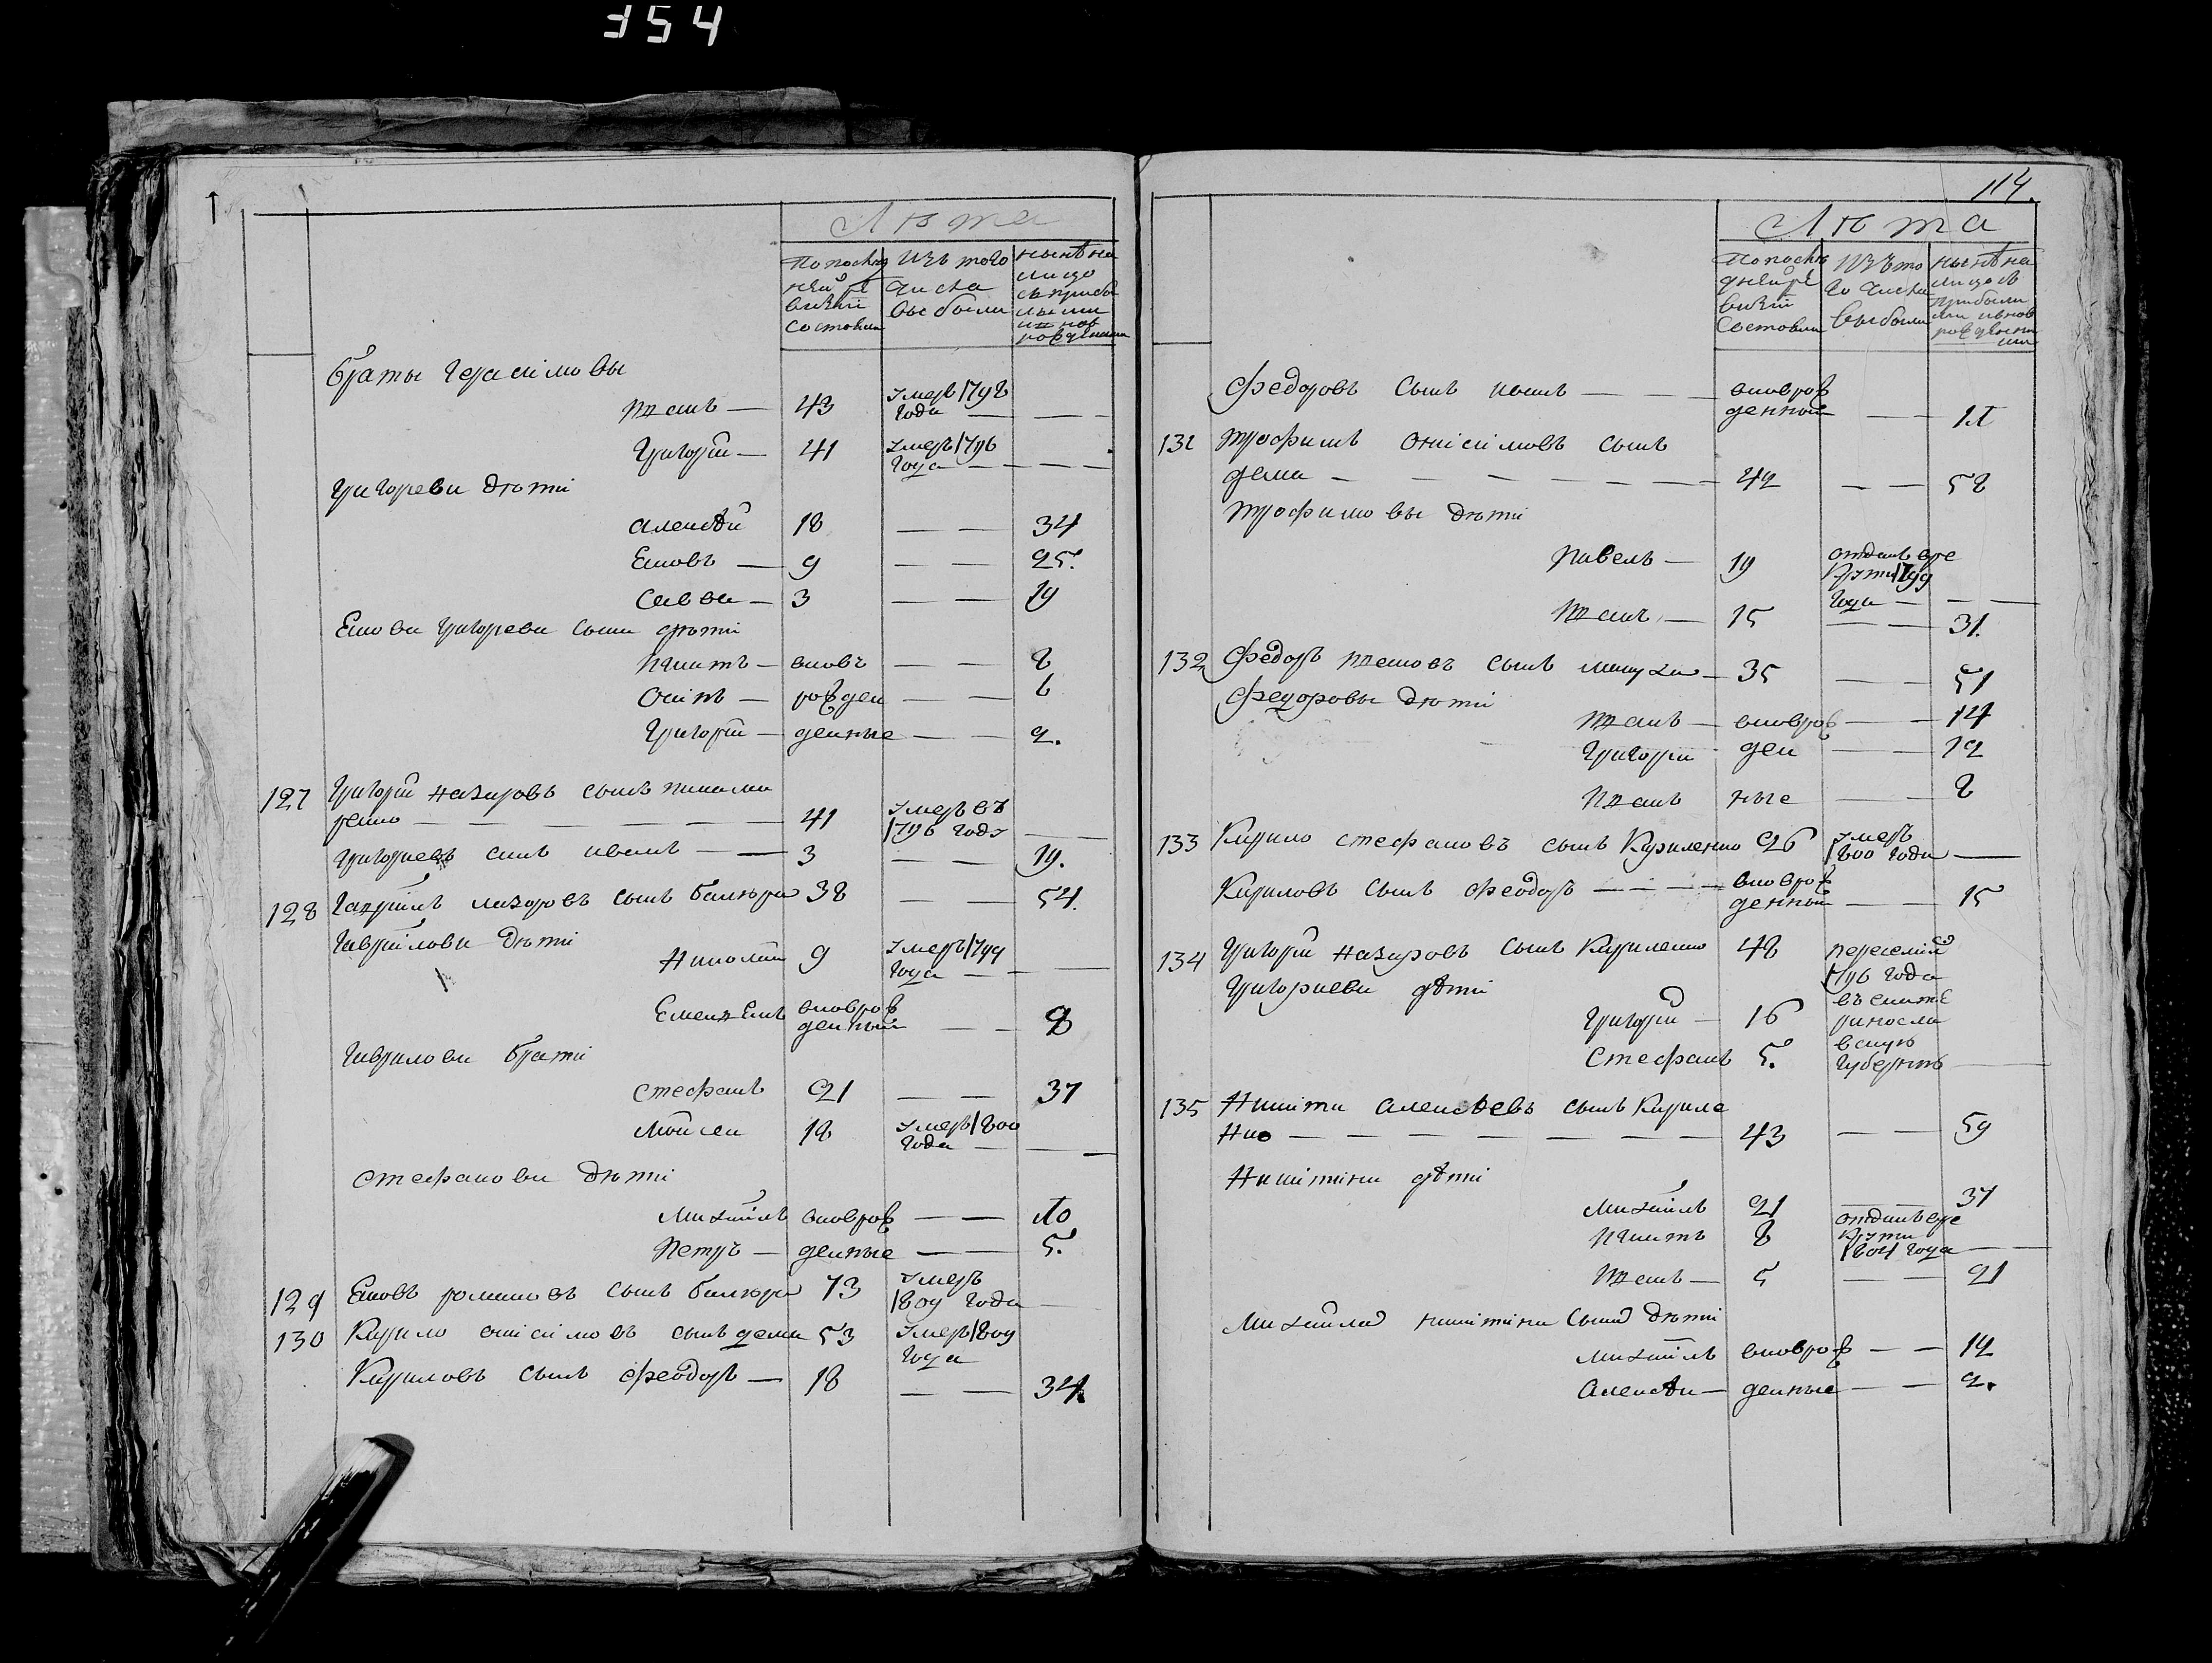 354
Лѣта
По послѣд
ней ре
визіи
состояли
Изъ того
числа
выбыли
нынѣ на
лицо
съ прибы
лыми
и нов
рожденными
браты Герасимовы
Иванъ — 43 умеръ 1798
года — —
Григорій — 41 умеръ 1796
года — — —
Григореви дѣти
Алексѣй 18 — — 34
Яковъ — 9 — — 25.
Савва — 3 — — 19
Якова Григорева сына дѣти
Игнатъ — вновъ — — 8
Осипъ — рожден — — 6
Григорій — денные — — 2.
127 Григорій Назаровъ сынъ
ренко — — — 41 умеръ въ
1796 году —
Григориевъ синъ Иванъ — — 3 — — 19.
128 Гаврійлъ Лазоровъ сынъ 38 — — 54.
Гаврійлови дѣти
Николай 9 умеръ 1799
года — — —
Емельянъ вновъ рож
денный — — 8
Гаврилови брати
Стефанъ 21 — — 37
Мойсей 18 умеръ 1800
года — —
Стефанови дѣти
Михайлъ вновъ рож — — 10
Петръ — денные — — 5.
129 Яковъ Романовъ сынъ 73 умеръ
1809 года —
130 Кирило Онісімовъ сынъ Дема 53 умеръ 1809
года
Кириловъ сынъ Феодоръ — 18 — — 34.
114.
Лѣта
По послѣ
дней ре
визіи
состояли
Изъ то
го числа
выбыли
нынѣ на
лицо съ
прибылы
ми и внов
рожденны
ми
Федоровъ сынъ Иванъ — — вновъ рож
денный — — 11
131 Трофимъ Онісімовъ сынъ
Дема — — — — — 42 — — 58
Трофимовы дѣти
Павелъ — 19 отданъ в ре
круты 1799
года — —
Иванъ — 15 — — 31.
132 Федоръ Ивановъ сынъ — 35 — — 51
Федоровы дѣти
Иванъ — вновъ рож — — 14
Григорій ден — — 12
Иванъ ные — — 8
133 Кирило Стефановъ сынъ Куриленко 26 умеръ
1800 года —
Кириловъ сынъ Феодоръ — — — вновъ рож
денный — — 15
134 Григорій Назаровъ сынъ Куриленко 48 переселился
1796 года
въ Екате
ринос ла
вскую
губернію —
Григориеви дѣти
Григорій — 16
Стефанъ 5.
135 Никита Алексѣевъ сынъ Куриле
нко — — — — — — 43 — — 59
Никитини дѣти
Михайлъ 21 — 37
Игнатъ 8 отданъ в ре
круты
1804 года — —
Иванъ — 5 — — 21
Михайла Никитина сына дѣти
Михайлъ вновъ рож — — 12
Алексѣй — денные — — 2.